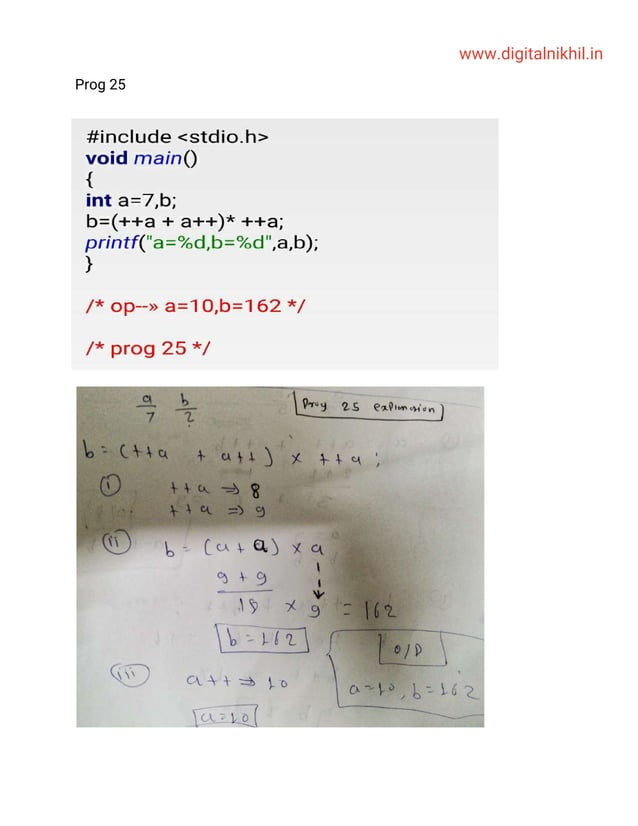 www.digitalnikhil.in
Prog 25
#include <stdio.h>
void main()
{
int a=7,b;
b=(++a + a++)* ++a;
printf("a=%d,b=%d",a,b);
}
/* op--» a=10,b=162 */
/* prog 25 */
a b
7 ?
Prog 25 explanation
b = (++a + a++) × ++a ;
(i) ++a ⇒ 8
++a ⇒ 9
(ii) b = (a + a) × a
9 + 9
18 × 9 = 162
b = 162
O/P
(iii) a++ ⇒ 10
a=10, b=162
a=10